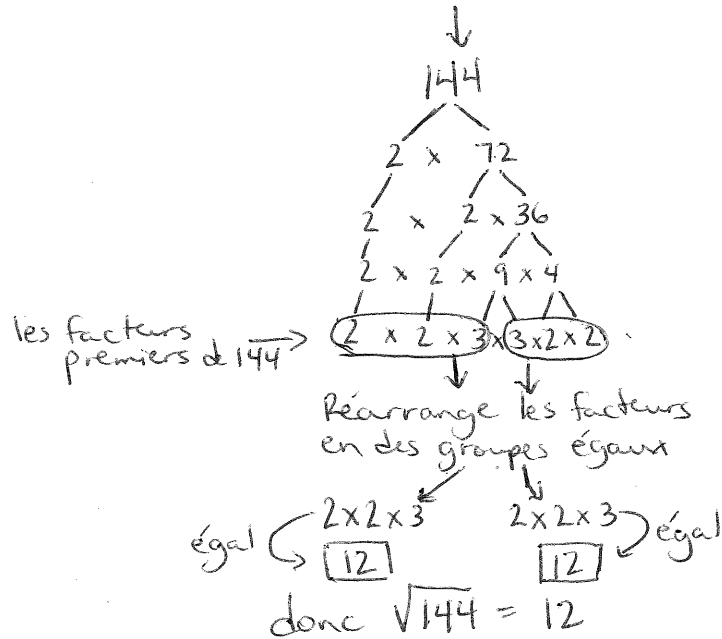 144
2 x 72
2 x 2 x 36
2 x 2 x 9 x 4
les facteurs
premiers de 144
2 x 2 x 3 x 3 x 2 x 2
Réarrange les facteurs
en des groupes égaux
2 x 2 x 3 2 x 2 x 3
égal égal
12 12
donc √144 = 12